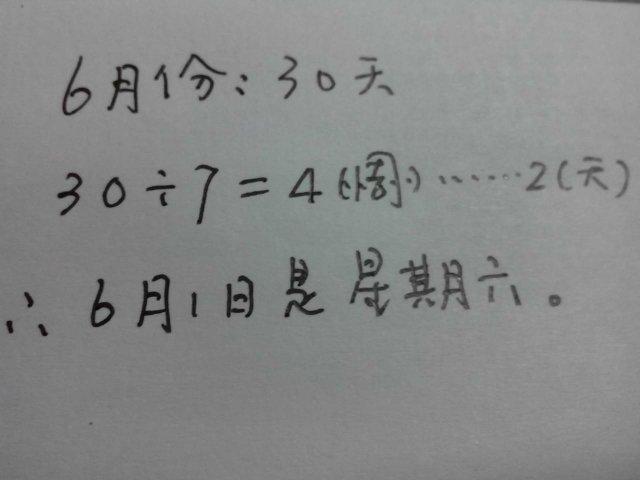 6月份：30天
30÷7=4(周)……2(天)
∴6月1日是星期六。